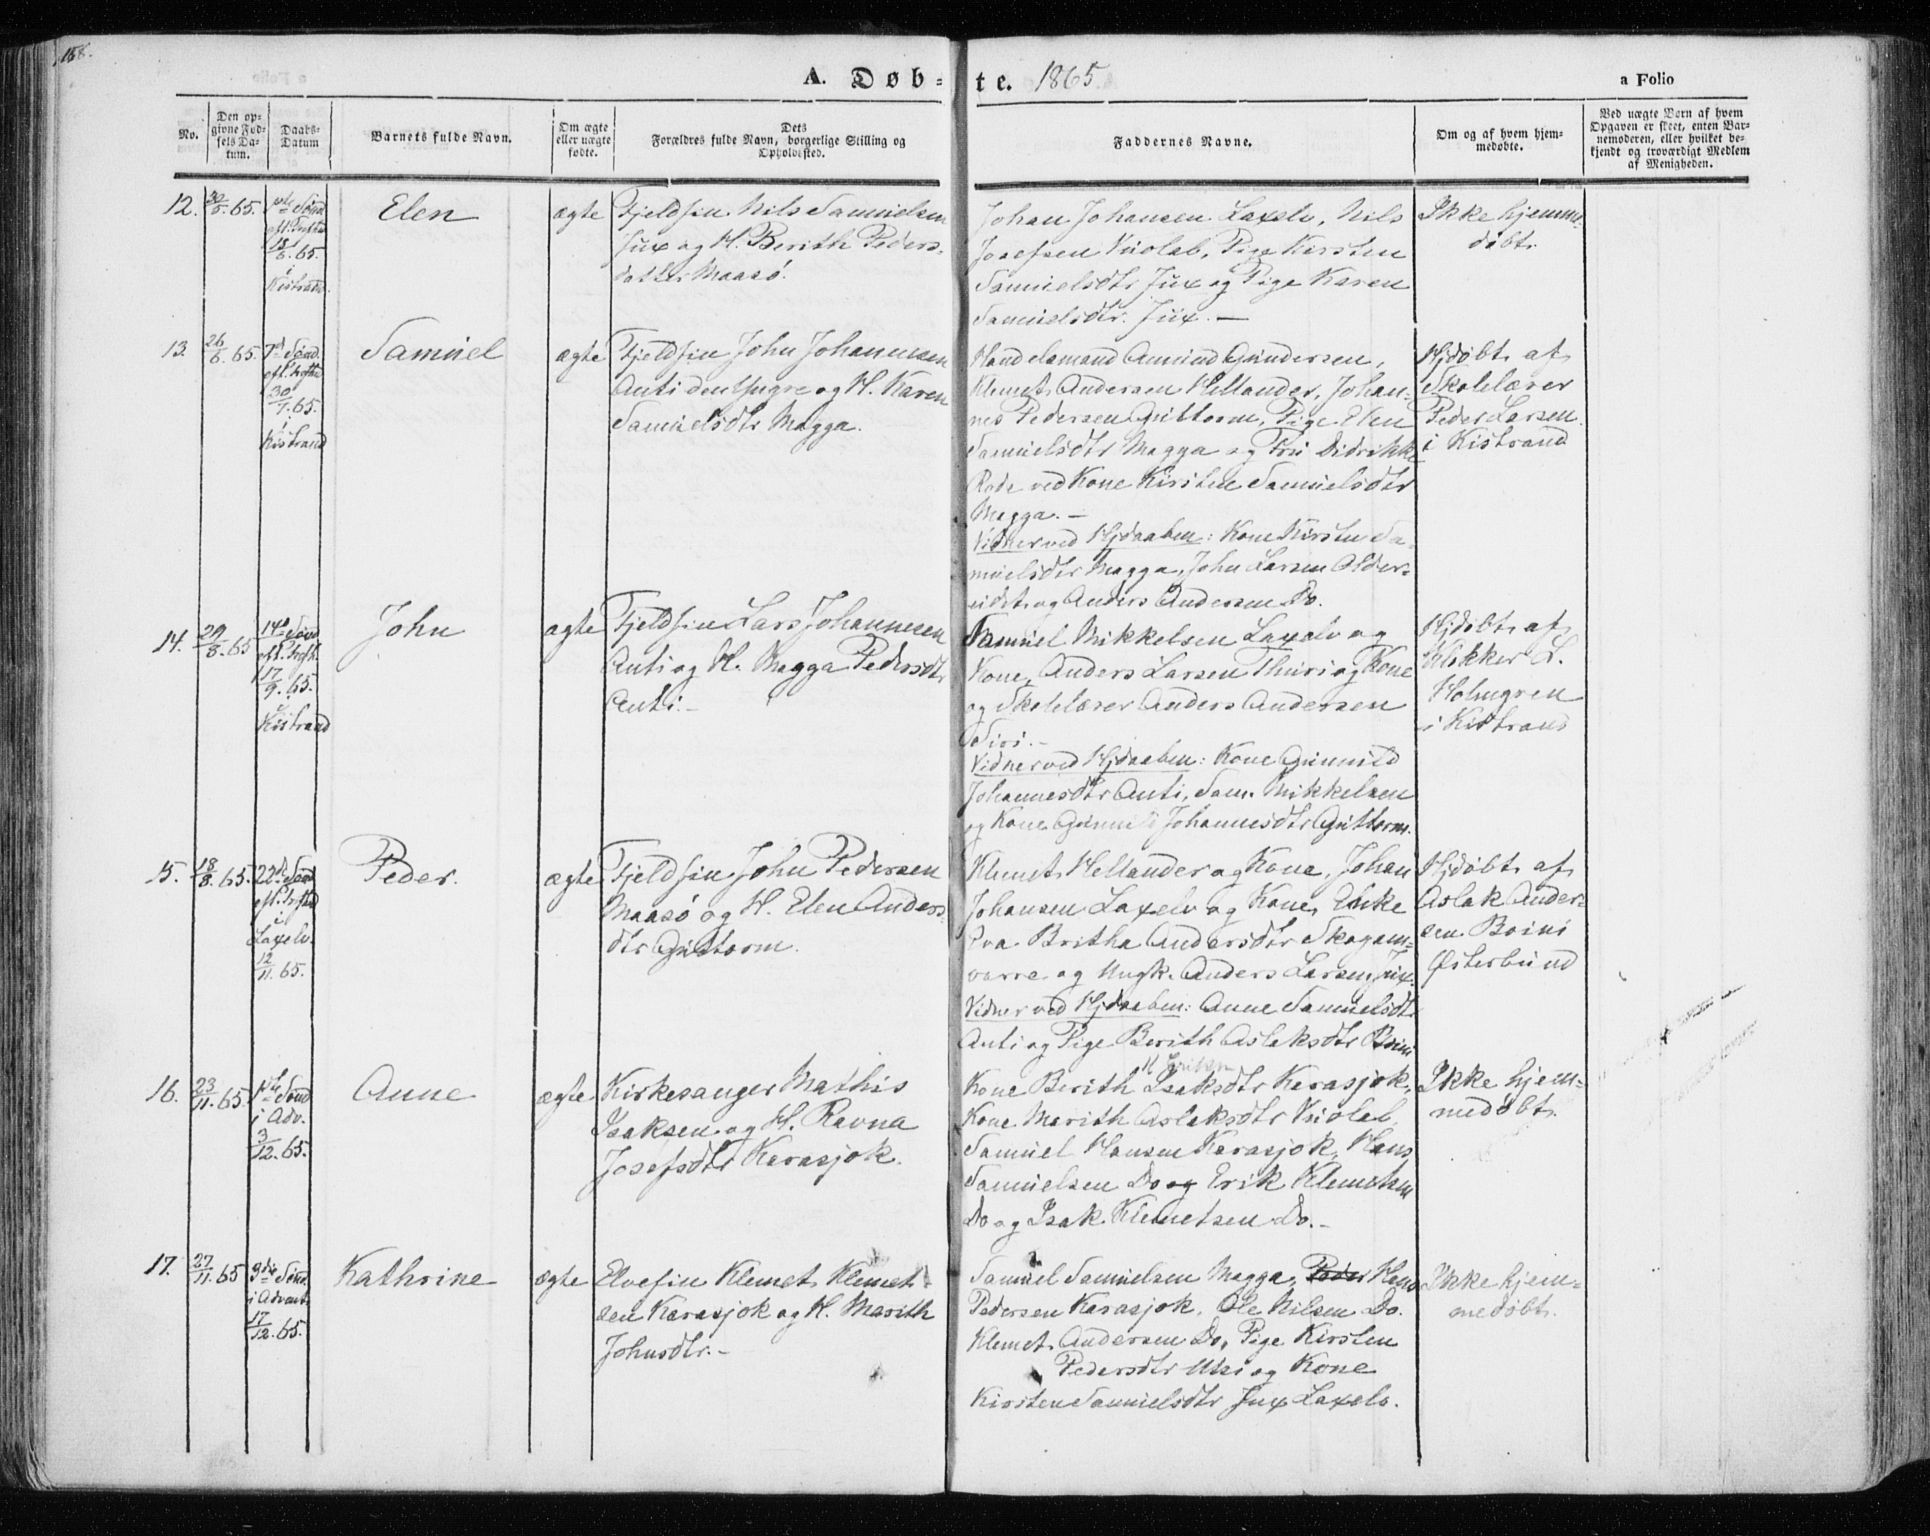 158.
A. Døb-
te. 1865.
a Folio
No.
Den op-
givne Fød-
sels Da-
tum.
Daabs-
Datum
Barnets fulde Navn.
Om ægte
eller uægte
fødte.
Dets
Forældres fulde Navn, borgerlige Stilling og
Opholdssted.
Faddernes Navne.
Om og af hvem hjem-
medøbte.
Ved uægte Børn af hvem
Opgaven er skeet, enten Bar-
nemoderen, eller hvilket be-
kjendt og troværdigt Medlem
af Menigheden.
12.
30/5. 65.
Sønd.
eft. Trefth
18/6. 65.
i
Kistrand.
Elen
ægte
Fjeldfin Nils Samuelsen
Jux og H. Berith Peders-
datter Maasø.
Johan Johansen Laxelv, Nils
Josefsen Vuolab, Pige Kirsten
Samuelsdtr Jux og Pige Karen
Samuelsdtr. Jux. —
Ikke hjemme-
døbt.
13.
26/6. 65.
7d Sønd.
eft. Trefth
30/7. 65.
i
Kistrand
Samuel
ægte
Fjeldfin John Johannesen
Anti den Yngre og H. Karen
Samuelsdtr Magga.
Handelsmand Amund Gundersen,
Klemet Andersen Hellander, Johan-
nes Pedersen Guttorm, Pige Elen
Samuelsdtr Magga og Fru Didrikke
Rode ved Kone Kirsten Samuelsdtr
Magga. —
Vidner ved Hjdaaben: Kone Kirsten Sa-
muelsdtr Magga, John Larsen Older-
eidet og Anders Andersen Do.
Hjdøbt af
Skolelærer
Peder Larsen
i Kistrand
14.
29/8. 65
14d Sønd
eft. Trefth.
17/9. 65.
i
Kistrand
John
ægte
Fjeldfin Lars Johannesen
Anti og H. Magga Pedersdtr
Anti. —
Samuel Mikkelsen Laxelv og
Kone, Anders Larsen Thuri og Kone
og Skolelærer Anders Andersen
Siri. —
Vidner ved Hjdaaben: Kone Gunnild
Johannesdtr Anti, Sam. Mikkelsen
og Kone Gunnild Johannesdtr Guttorm.
Hjdøbt af
Klokker L.
Holmgren
i Kistrand
15.
18/8. 65.
22d Sønd
eft. Trefth
i
Laxelv.
12/11. 65.
Peder.
ægte
Fjeldfin John Pedersen
Maasø og H. Elen Anders-
dtr Guttorm.
Klemet Hellander og Kone, Johan
Johansen Laxelv og Kone, Enke
Eva Britha Andersdtr Skogam-
varre og Ungk. Anders Larsen Jux.
Vidner ved Hjdaaben: Anne Samuelsdtr
Anti og Pige Berith Aslaksdtr Boini
Hjdøbt af
Aslak Ander-
sen Boini
Østerbund
16.
23/11. 65.
1ste Sønd
i Adv.
3/12. 65.
Anne
ægte
Kirkesanger Mathis
Isaksen og H. Ravna
Josefsdtr Karasjok.
Kone Berith Isaksdtr Karasjok,
Kone Marith Aslaksdtr Vuolab,
Samuel Hansen Karasjok, Hans
Samuelsen Do og Erik Klemetsen
Do og Isak Klemetsen Do. —
Ikke hjem-
medøbt.
17.
27/11. 65
3die Sønd.
i Advent
17/12. 65.
Kathrine
ægte
Elvefin Klemet Klemet-
sen Karasjok og H. Marith
Johnsdtr. —
Samuel Samuelsen Magga, Peder Hans
Pedersen Karasjok, Ole Nilsen Do.
Klemet Andersen Do, Pige Kirsten
Pedersdtr Utsi og Kone
Kirsten Samuelsdtr Jux Laxelv.
Ikke hjem-
medøbt.